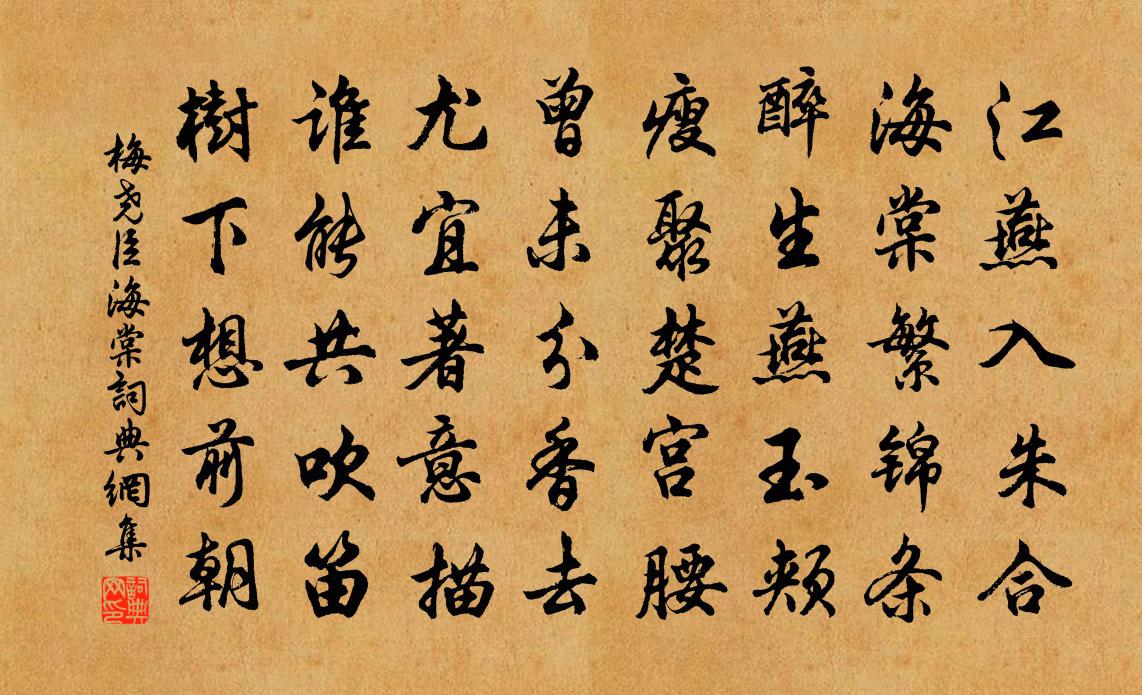 江燕入朱合
海棠繁锦条
醉生燕玉颊
瘦聚楚宫腰
曾未分香去
尤宜著意描
谁能共吹笛
樹下想前朝
梅尧臣海棠詞典網集
詞典網印